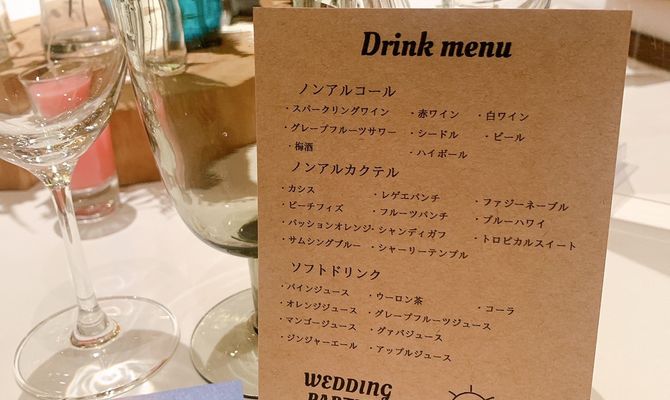 Drink menu
ノンアルコール
・スパークリングワイン ・赤ワイン ・白ワイン
・グレープフルーツサワー ・シードル ・ビール
・梅酒 ・ハイボール
ノンアルカクテル
・カシス ・レゲエパンチ ・ファジーネーブル
・ピーチフィズ ・フルーツパンチ ・ブルーハワイ
・パッションオレンジ ・シャンディガフ ・トロピカルスイート
・サムシングブルー ・シャーリーテンプル
ソフトドリンク
・パインジュース ・ウーロン茶 ・コーラ
・オレンジジュース ・グレープフルーツジュース
・マンゴージュース ・グァバジュース
・ジンジャーエール ・アップルジュース
WEDDING